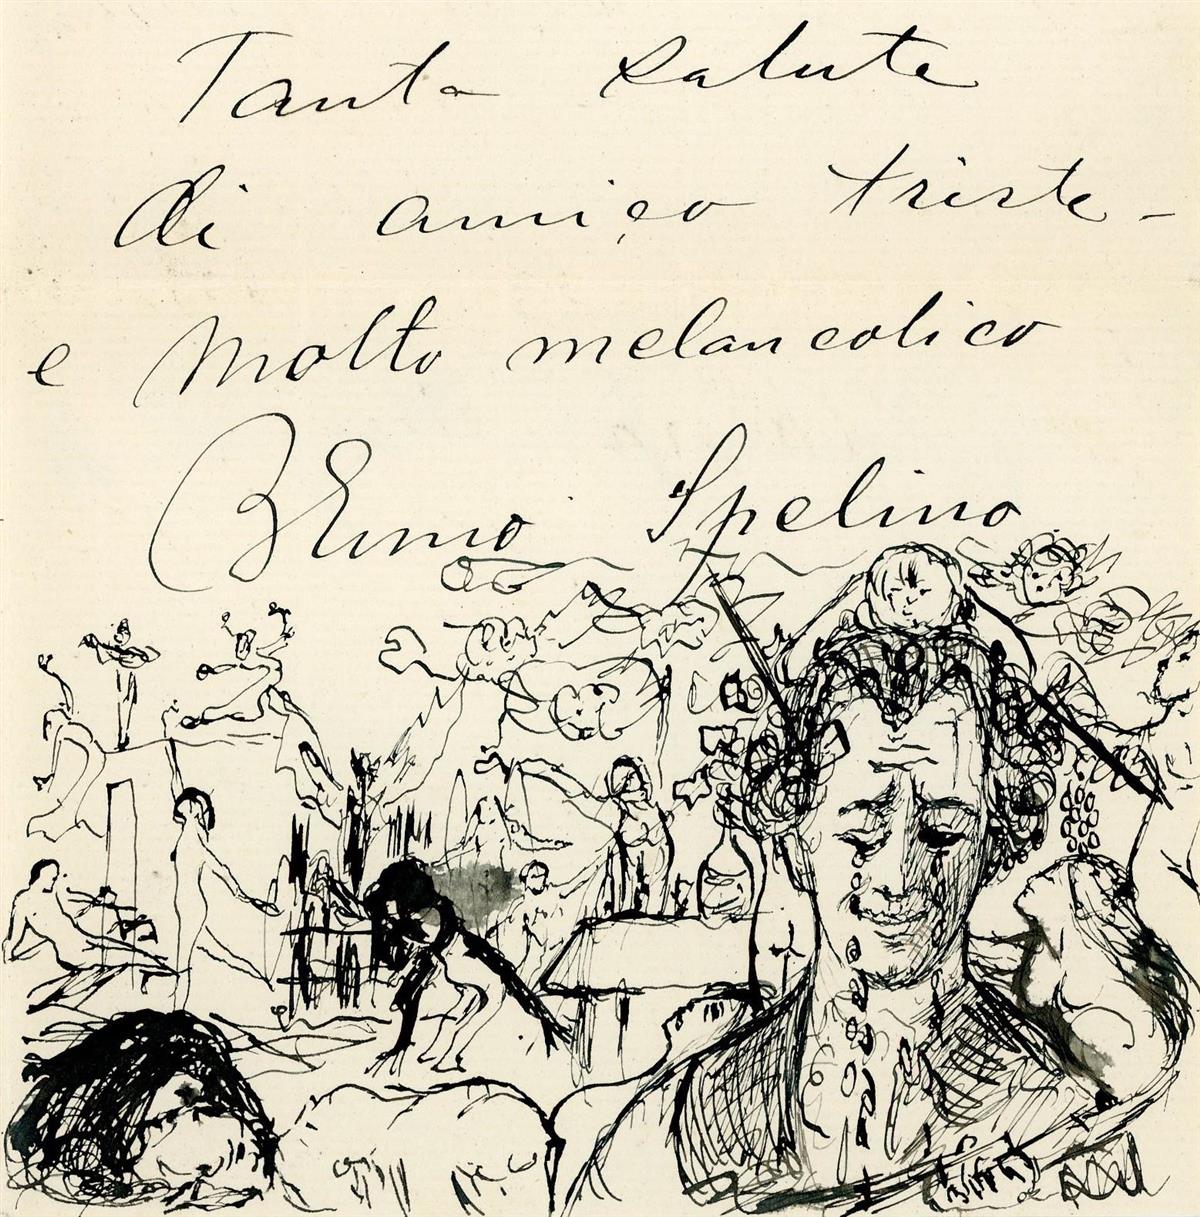 Tanta salute
di amico triste -
e molto melancolico
Bruno Spelino